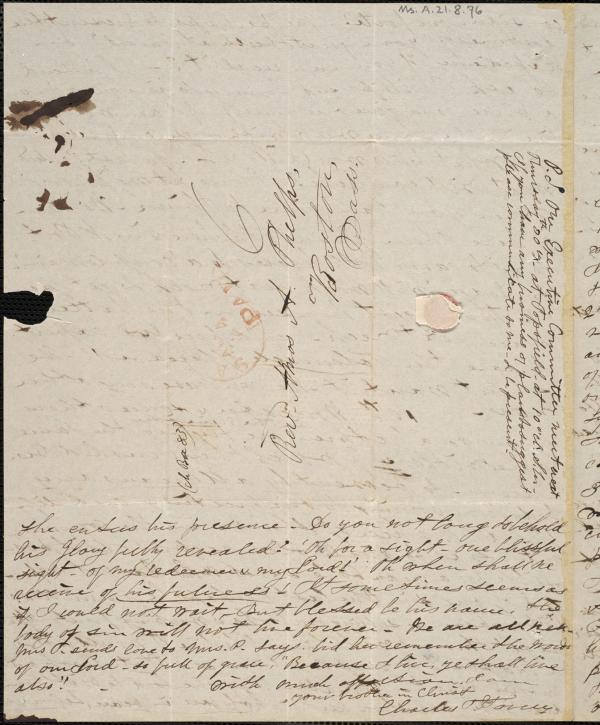 Ms. A.21.8.76
P.S. Our Executive Committee meet next
Thursday at Topsfield at 10 o'clk. A.M.
If you have any business or plan to suggest
please communicate to me - or be present.
Rev. Amos A. Phelps,
Boston,
Mass.
6
PAID
his presence - Do you not long to behold
his glory fully revealed? 'Oh for a sight - one blissful
sight - of my redeemer & my Lord!' Oh when shall we
receive of his fulness! It sometimes seems as
if I could not wait. But blessed be his name, this
body of sin will not live forever - We are all
Mrs. T. sends love to Mrs. P. says bid her remember the words
of our Lord - so full of grace, "Because I live, ye shall live
also"!
With much affection, I am
your brother in Christ
Charles